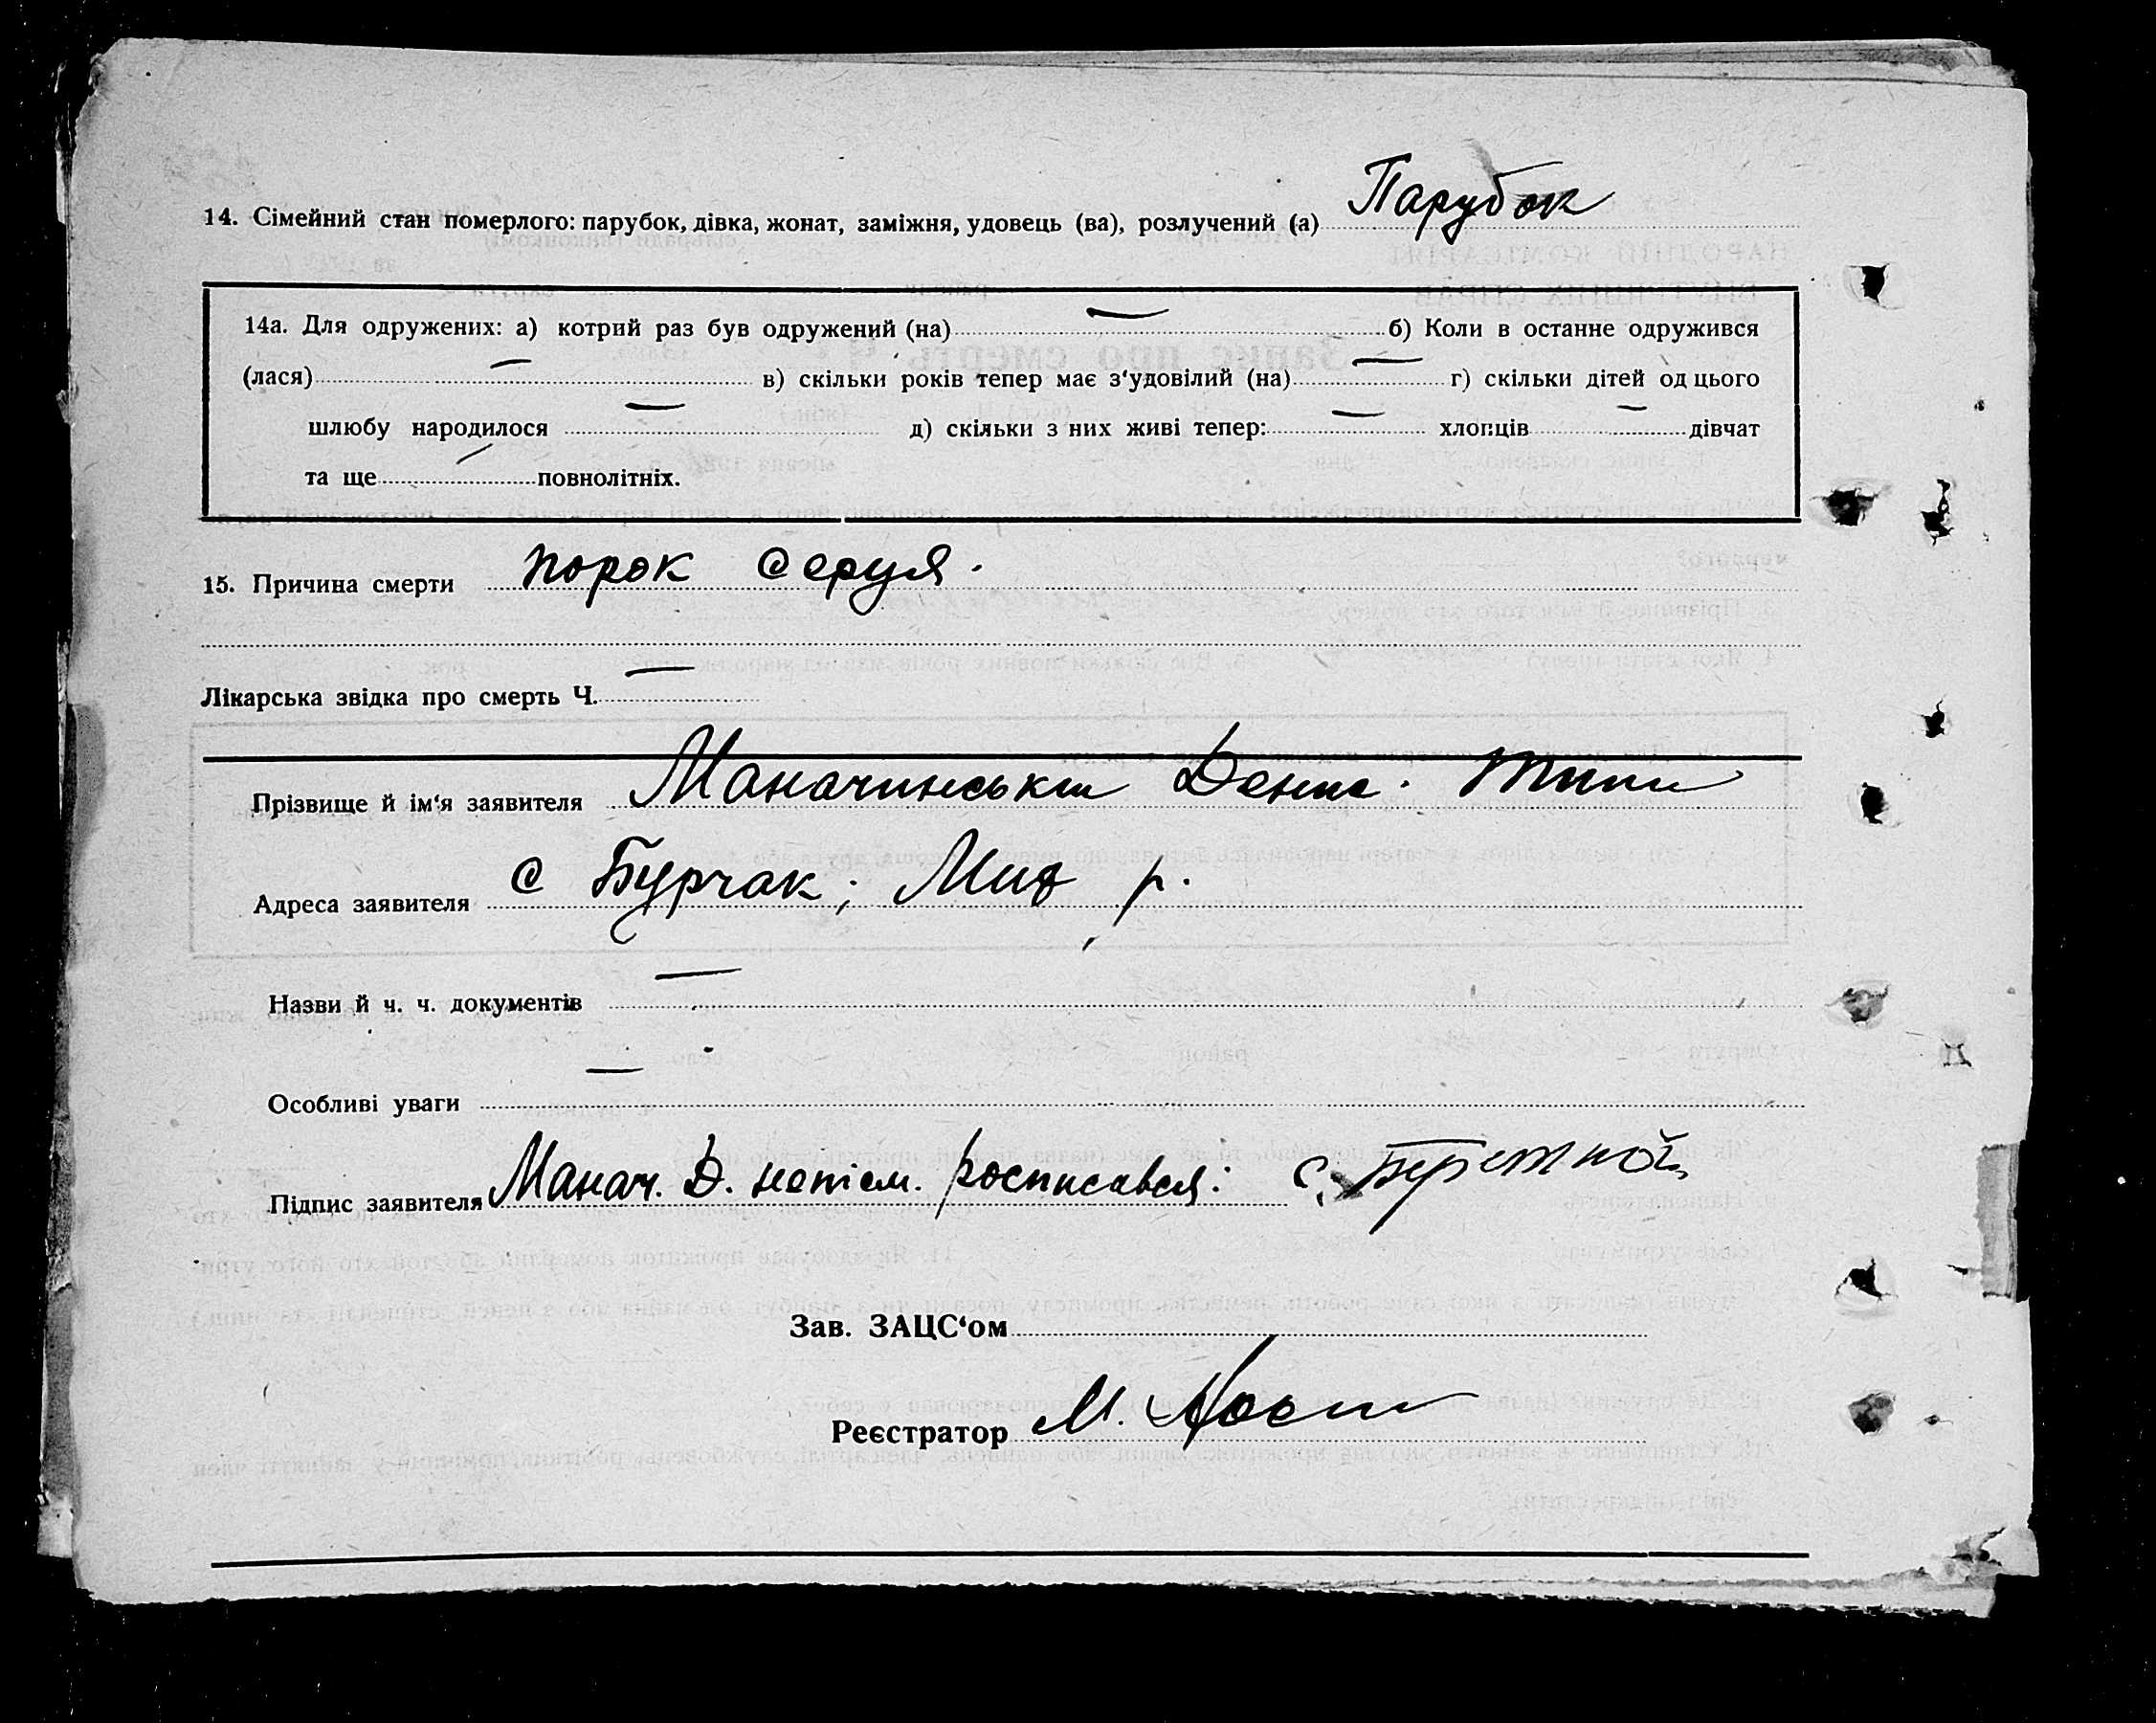 14. Сімейний стан померлого: парубок, дівка, жонат, заміжня, удовець (ва), розлучений (а) Парубок
14а. Для одружених: а) котрий раз був одружений (на) — б) Коли в останне одружився
(лася) — в) скільки років тепер має з‘удовілий (на) — г) скільки дітей од цього
шлюбу народилося — д) скільки з них живі тепер: — хлопців — дівчат
та ще — повнолітніх.
15. Причина смерти порок серця.
Лікарська звідка про смерть Ч. —
Прізвище й ім‘я заявителя Маначинський Денис.
Адреса заявителя с Бурчак; р.
Назви й ч. ч. документів —
Особливі уваги —
Підпис заявителя Манач. Д. непісм. росписався: С.
Зав. ЗАЦС‘ом
Реєстратор М.